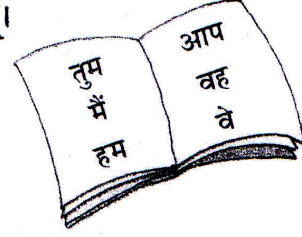 तुम
मैं
हम
आप
वह
वे